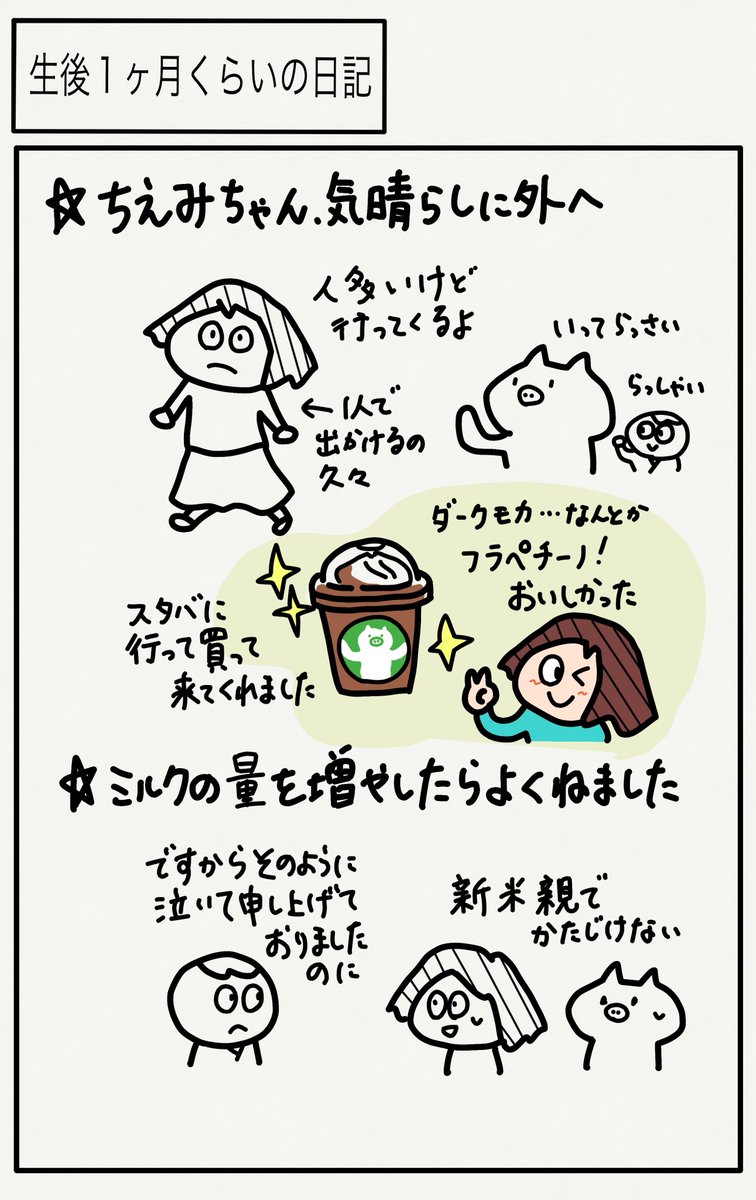 生後1ヶ月くらいの日記
☆ちえみちゃん、気晴らしに外へ
人多いけど
行ってくるよ
いってらっさい
らっしゃい
←1人で
出かけるの
久々
ダークモカ…なんとか
フラペチーノ!
おいしかった
スタバに
行って買って
来てくれました
☆ミルクの量を増やしたらよくねました
ですからそのように
泣いて申し上げて
おりました
のに
新米親で
かたじけない